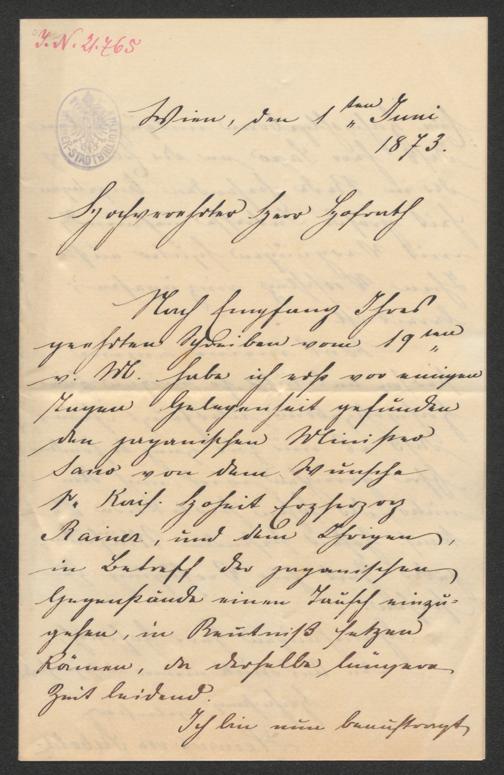 J. N. 21.765
Wien, den 1ten Juni
1873.
Hochverehrter Herr Hofrath
Nach Empfang Ihres
geehrten Schreiben vom 19ten
v. M. habe ich erst vor einigen
Tagen Gelegenheit gefunden
den japanischen Minister
Sano von dem Wunsche
Sr. Kais. Hoheit Erzherzog
Rainer, und dem Ihrigen,
in Betreff der japanischen
Gegenstände einen Tausch einzu-
gehen, in Kentniß setzen
können, da derselbe längere
Zeit leidend.
Ich bin nun beauftragt